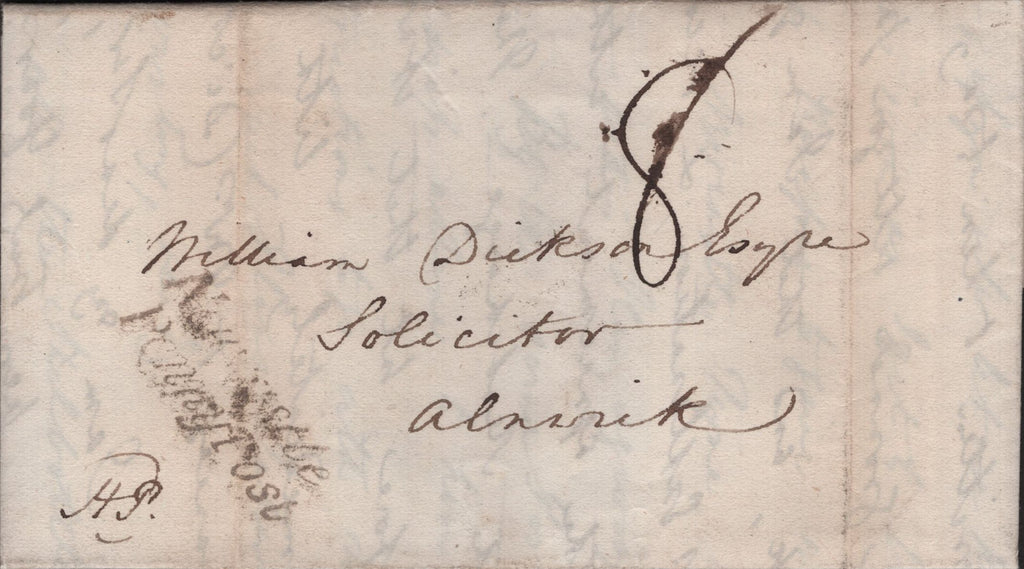 8
William Dickson Esqre
Solicitor
Alnwick
Newcastle
Penny Post
HP.